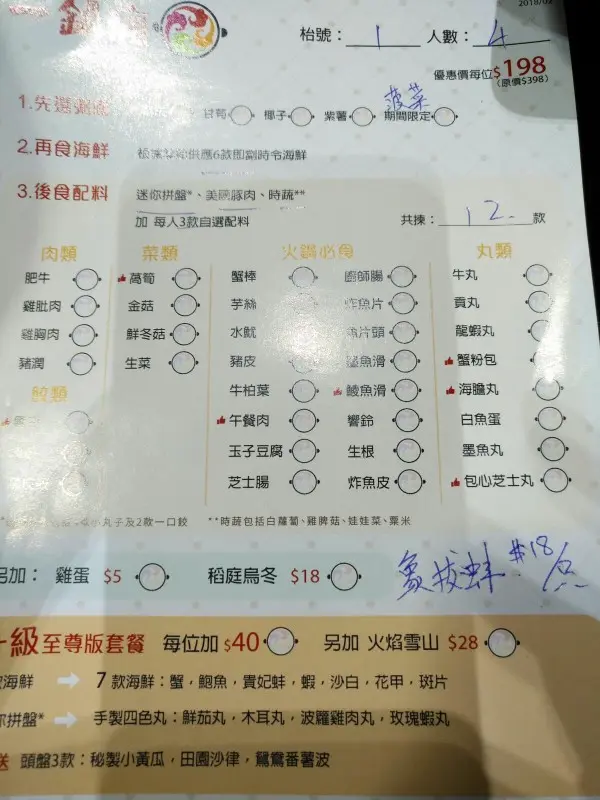 2018/02
枱號： 1 人數： 4
優惠價每位$198
(原價$398)
菠菜
1.先選粥底 甘筍 椰子 紫薯 期間限定
2.再食海鮮 供應6款即劏時令海鮮
3.後食配料 迷你拼盤*、美國豚肉、時蔬**
加 每人3款自選配料 共揀： 12 款
肉類 菜類 火鍋必食 丸類
肥牛 萵筍 蟹棒 廚師腸 牛丸
雞肶肉 金菇 芋絲 炸魚片 貢丸
雞胸肉 鮮冬菇 水魷 魚片頭 龍蝦丸
豬潤 生菜 豬皮 墨魚滑 蟹粉包
餃類 牛柏葉 鯪魚滑 海膽丸
午餐肉 響鈴 白魚蛋
玉子豆腐 生根 墨魚丸
芝士腸 炸魚皮 包心芝士丸
丸子及2款一口餃 **時蔬包括白蘿蔔、雞脾菇、娃娃菜、粟米
另加： 雞蛋 $5 稻庭烏冬 $18 象拔蚌 #18/
級至尊版套餐 每位加 $40 另加 火焰雪山 $28
海鮮 7 款海鮮：蟹，鮑魚，貴妃蚌，蝦，沙白，花甲，斑片
你拼盤* 手製四色丸：鮮茄丸，木耳丸，波蘿雞肉丸，玫瑰蝦丸
送 頭盤3款：秘製小黃瓜，田園沙律，鴛鴦番薯波